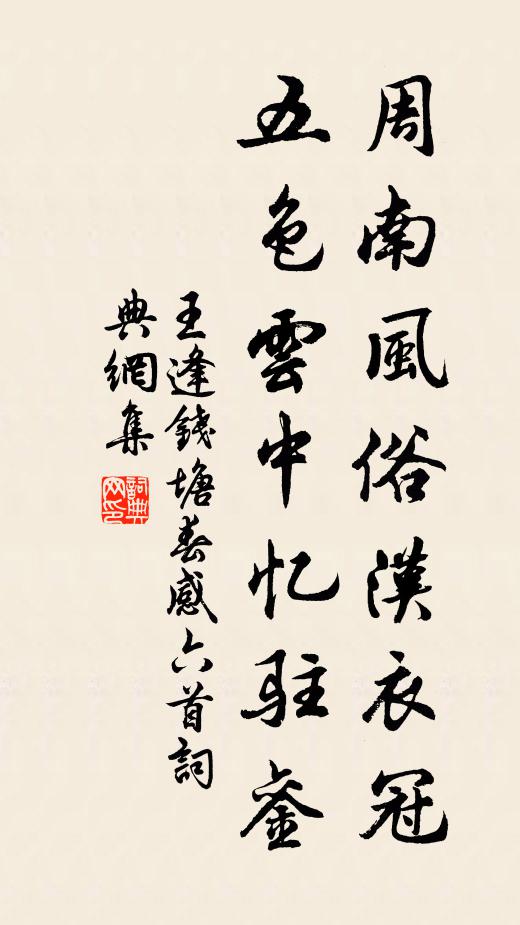 周南風俗漢衣冠
五色雲中忆駐銮
王逢錢塘春感六首詞
典網集
詞典网印